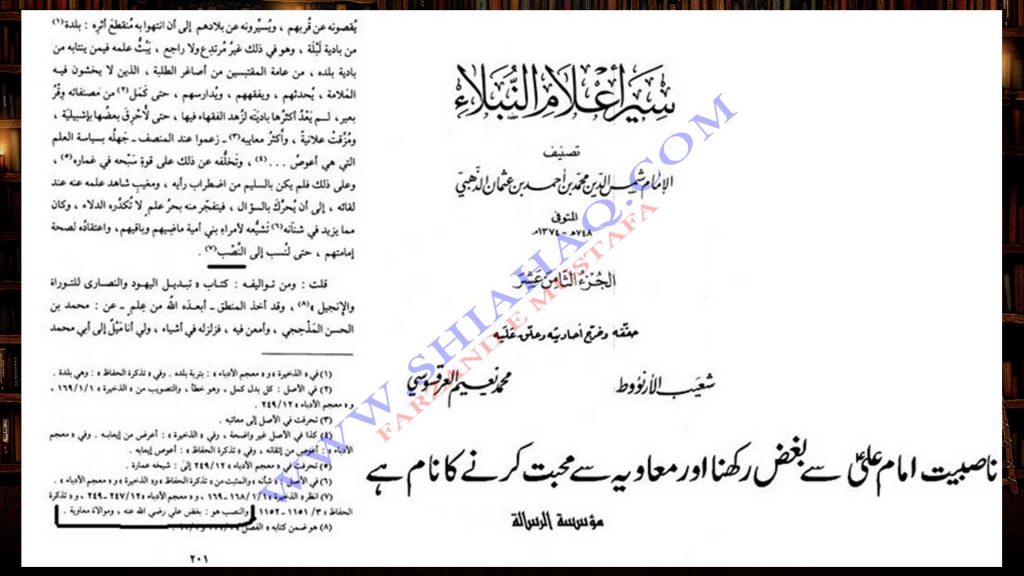 سير أعلام النبلاء
تصنيف
الإمام شمس الدين محمد بن أحمد بن عثمان الذهبي
المتوفى
٧٤٨هـ - ١٣٧٤م
الجزء الثامن عشر
حققه وخرج أحاديثه وعلق عليه
شعيب الأرنؤوط محمد نعيم العرقسوسي
ناصبیت امام علیؑ سے بغض رکھنا اور معاویہ سے محبت کرنے کا نام ہے
مؤسسة الرسالة
يُقصونه عن قُربهم ، ويُسيِّرونه عن بلادهم إلى أن انتهوا به مُنقطعَ أثرِه : بلدة(١)
من بادية لَبْلَة ، وهو في ذلك غيرُ مُرتدعٍ ولا راجع ، يَبُثُّ علمه فيمن ينتابه من
بادية بلده ، من عامة المقتبسين من أصاغر الطلبة ، الذين لا يخشون فيه
المَلامة ، يُحدثهم ، ويفقههم ، ويُدارسهم ، حتى كَمَل(٢) من مصنفاته وِقْرُ
بعير، لم يَعْدُ أكثرُها باديتَه لزُهد الفقهاء فيها ، حتى لأُحْرِقَ بعضُها بإشبيلية ،
ومُزِّقَتْ علانيةً ، وأكثرُ معايبه(٣) ـ زعموا عند المنصف ـ جهلُه بسياسة العلم
التي هي أعوصُ ...(٤) ، وتَخلُّفه عن ذلك على قوةِ سَبْحه في غماره(٥) ،
وعلى ذلك فلم يكن بالسليم من اضطراب رأيه ، ومغيبِ شاهد علمه عنه عند
لقائه ، إلى أن يُحرَّكَ بالسؤال ، فيتفجّر منه بحرُ علمٍ لا تُكدِّره الدلاء ، وكان
مما يزيد في شنآنه(٦) تشيُّعه لأمراءِ بني أمية ماضيهم وباقيهم ، واعتقادُه لصحة
إمامتهم ، حتى لنُسب إلى النَّصْب(٧) .
قلت : ومن تواليفه : كتاب « تبديل اليهود والنصارى للتوراة
والإنجيل »(٨) ، وقد أخذ المنطق ـ أبعدَه اللهُ من علمٍ ـ عن : محمد بن
الحسن المَذْحِجي ، وأمعن فيه ، فزلزله في أشياء ، ولي أنا ميْلٌ إلى أبي محمد
(١) في « الذخيرة » و « معجم الأدباء » : بتربة بلده . وفي « تذكرة الحفاظ » : وهي بلدة .
(٢) في الأصل : كل بدل كمل ، وهو خطأ ، والتصويب من « الذخيرة » ١/١/١٦٩ ،
و « معجم الأدباء » ٢٤٩/١٢ .
(٣) تحرفت في الأصل إلى معانيه .
(٤) كذا في الأصل غير واضحة ، وفي « الذخيرة » : أعوص من إيعابه . وفي « معجم
الأدباء » : أعوص من إتقانه ، وفي « تذكرة الحفاظ » : أعوص إيعابه .
(٥) تحرفت في « معجم الأدباء » ٢٤٩/١٢ إلى : شيخه عمارة .
(٦) في الأصل : شأنه ، والمثبت من « تذكرة الحفاظ » و« الذخيرة » و« معجم الأدباء » .
(٧) انظر « الذخيرة » ١/١/١٦٨ - ١٦٩ ، و « معجم الأدباء » ٢٤٧/١٢ - ٢٤٩ ، و « تذكرة
الحفاظ » ٣/ ١١٥١ - ١١٥٢ . والنصب هو : بغض علي رضي الله عنه ، وموالاة معاوية .
(٨) هو ضمن كتابه « الفصل
٢٠١
WWW.SHIAHAQ.COM
FARZAND E MUSTAFA